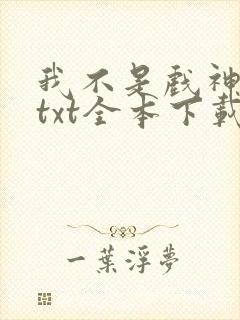 我不是戲神
txt全本下載
一葉浮夢